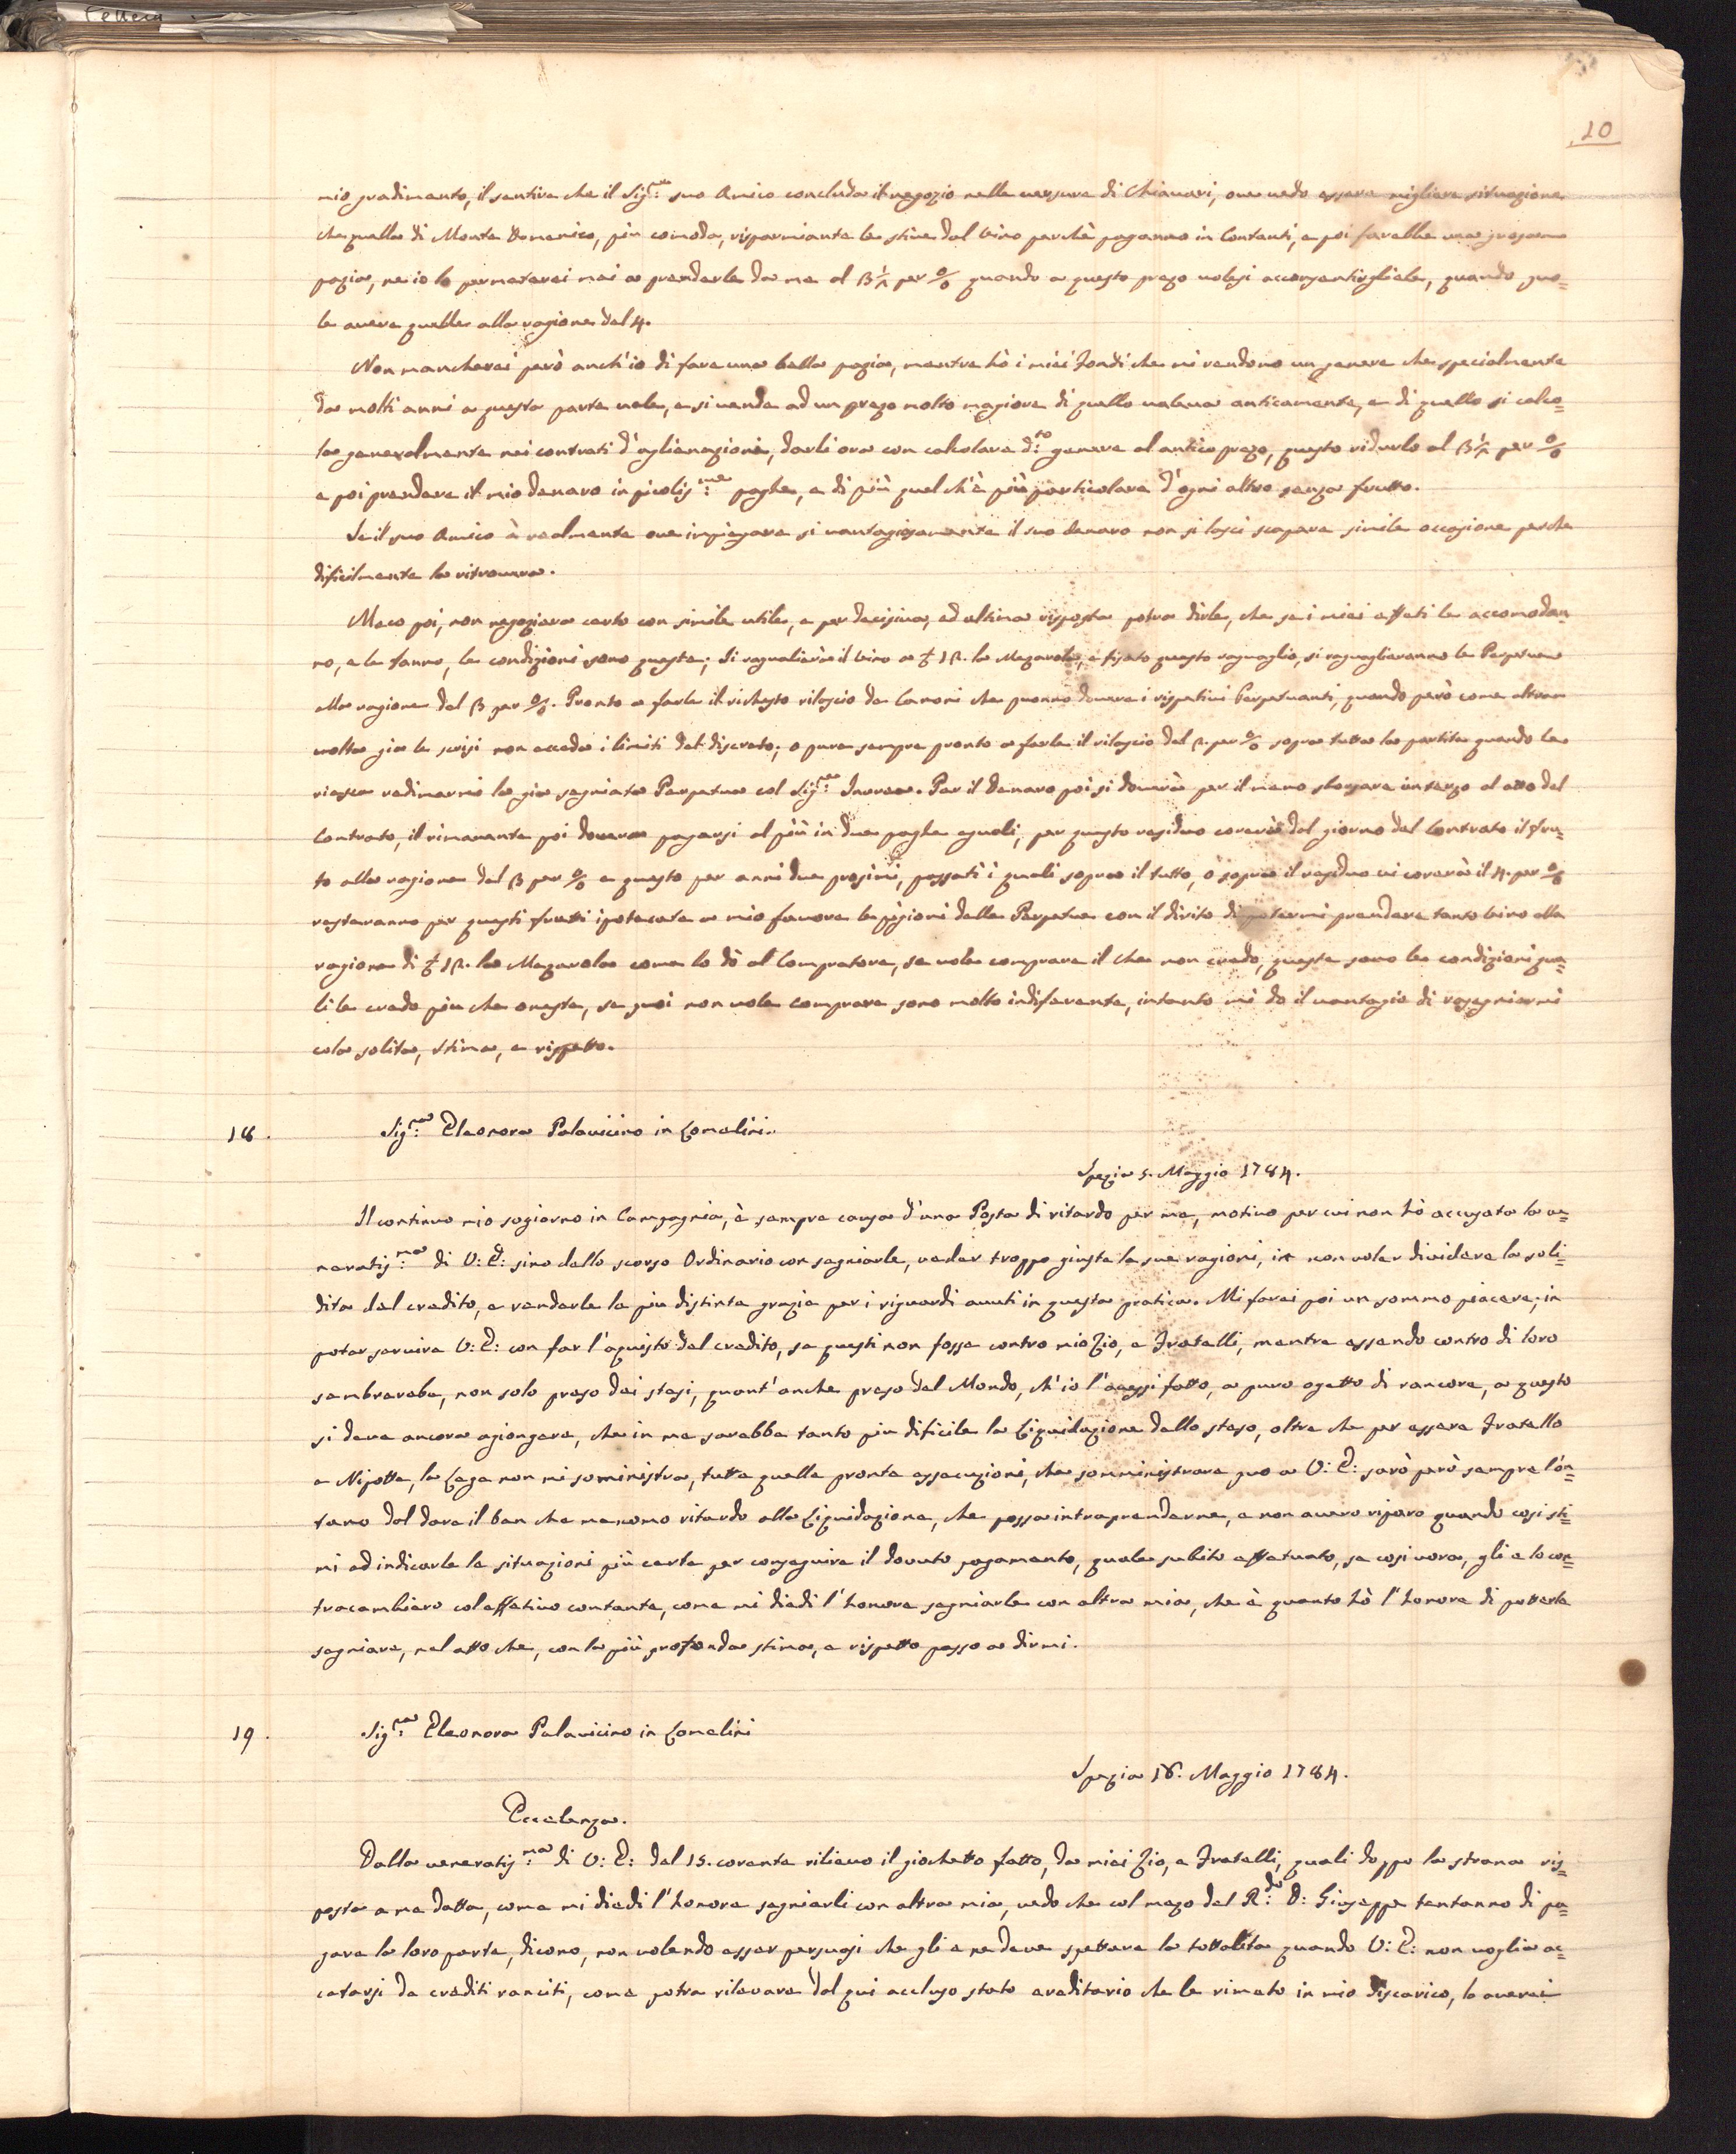 10
mio gradimento, il sentire che il Sig:re suo Amico concluda il negozio nelle versure di Chiavari, ove vedo essere migliore situazione
che quella di Monte Domenico, più comoda, risparmiante le stive dal vino perchè paganno in Contanti, e poi farebbe una grossa
pazia, ne io lo permeterei mai a prenderle da me al 3 1/2 per % quando a questo prezo volesi acconsentirgliele, quando puo-
le avere quelle alla ragione del 4.
Non mancherei però anch'io di fare una bella pazia, mentre hò i miei Fondi che mi rendono un genere che specialmente
da molti anni a questa parte vale, e si vende ad un prezo molto magiore di quello valeva anticamente, e di quello si calco-
la generalmente nei contrati d'aglienazioni, darli ora con calcolare d:to genere al antico prezo, questo ridurlo al 3 1/2 per %
e poi prendere il mio denaro in picolis:me paghe, e di più quel ch'è più particolare d'ogni altro senza frutto.
Se il suo Amico à realmente ove impiegare si vantagiosamente il suo denaro non si lasci scapare simile occasione perche
dificilmente la ritrovera.
Meco poi, non negoziera certo con simile utile, e per decisiva, ed ultima risposta potra dirle, che se i miei effeti le accomodan
no, e le fanno, le condizioni sono queste; Si raguaglierà il vino a £ 12. la Mezarola, e fisato questo raguaglio, si raguaglieranno le Perpetue
alla ragione del 3 per %. Pronto a farle il richiesto rilascio de Canoni che puonno dovere i rispetivi Perpetuanti, quando però come altra
volta gia le scrisi non acceda i limiti del discreto; o pure sempre pronto a farle il rilascio del 2. per % sopra tutta la partita quando le
riesca redimermi la gia segniata Perpetua col Sig:re Inurea. Per il denaro poi si dovrà per il meno sborsare un terzo al atto del
Contrato, il rimanente poi dovera pagarsi al più in due paghe eguali, per questo residuo corerà dal giorno del Contrato il fru-
to alla ragione del 3 per % e questo per anni due prosimi, passati i quali sopra il tutto, ò sopra il residuo vi corerà il 4. per %
resteranno per questi frutti ipotecate a mio favore le pigioni delle Perpetue con il dirito di potermi prendere tanto vino alla
ragione di £ 12. la Mezarola come lo dò al Compratore, se vole comprare il che non credo, queste sono le condizioni qua-
li le credo piu che oneste, se puoi non vole comprare sono molto indiferente, intanto mi da il vantagio di rasegniarmi
cola solita, stima, e rispetto.
18. Sig:ra Eleonora Palavicino in Lomelini.
Spezia 5. Maggio 1784.
Il continuo mio sogiorno in Campagnia, è sempre causa d'una Posta di ritardo per me, motivo per cui non hò accusata la ve-
neratis:ma di V: E: sino dallo scorso Ordinario con segniarle, veder troppo giuste le sue ragioni, in non voler dividere la soli-
dita del credito, e renderle le piu distinte grazie per i riguardi avuti in questa pratica. Mi farei poi un sommo piacere, in
poter servire V: E: con far l'aquisto del credito, se questi non fosse contro mio Zio, e Fratelli, mentre essendo contro di loro
sembrarebe, non solo preso dei stesi, quant'anche preso del Mondo, ch'io l'avessi fatto, a puro ogetto di rancore, a questo
si deve ancora agiongere, che in me sarebbe tanto piu dificile la Liquidazione dello steso, oltre che per essere Fratello
e Nipotte, la Lege non mi soministra, tutte quelle pronte essecuzioni, che somministrare puo a V: E: sarò però sempre lon-
tano dal dare il ben che menomo ritardo alla Liquidazione, che possa intraprenderne, e non avero riparo quando cosi sti-
mi ad indicarle le situazioni più certe per conseguire il dovuto pagamento, quale subito effetuato, se cosi vora, gli e lo con-
tracambiero coleffetivo contante, come mi diedi l'honore segniarle con altra mia, che è quanto hò l'honore di potterle
segniare, nel atto che, con la più profonda stima, e rispetto passo a dirmi.
19. Sig:ra Eleonora Palavicino in Lomelini
Spezia 16. Maggio 1784.
Eccelenza.
Dalla veneratis:ma di V: E: del 15. corente rilievo il giochetto fatto, da miei Zio, e Fratelli, quali doppo la strana ris-
posta a me datta, come mi diedi l'honore segniarli con altra mia, vedo che col mezo del R:do D: Giuseppe tentanno di pa-
gare la loro parte, dicono, non volendo esser persuasi che gli e ne deve spettare la tottalita quando V: E: non voglia ac-
cetarsi de crediti ranciti, come potra rilevare dal qui accluso stato ereditario che le rimeto in mio discarico, lo averei